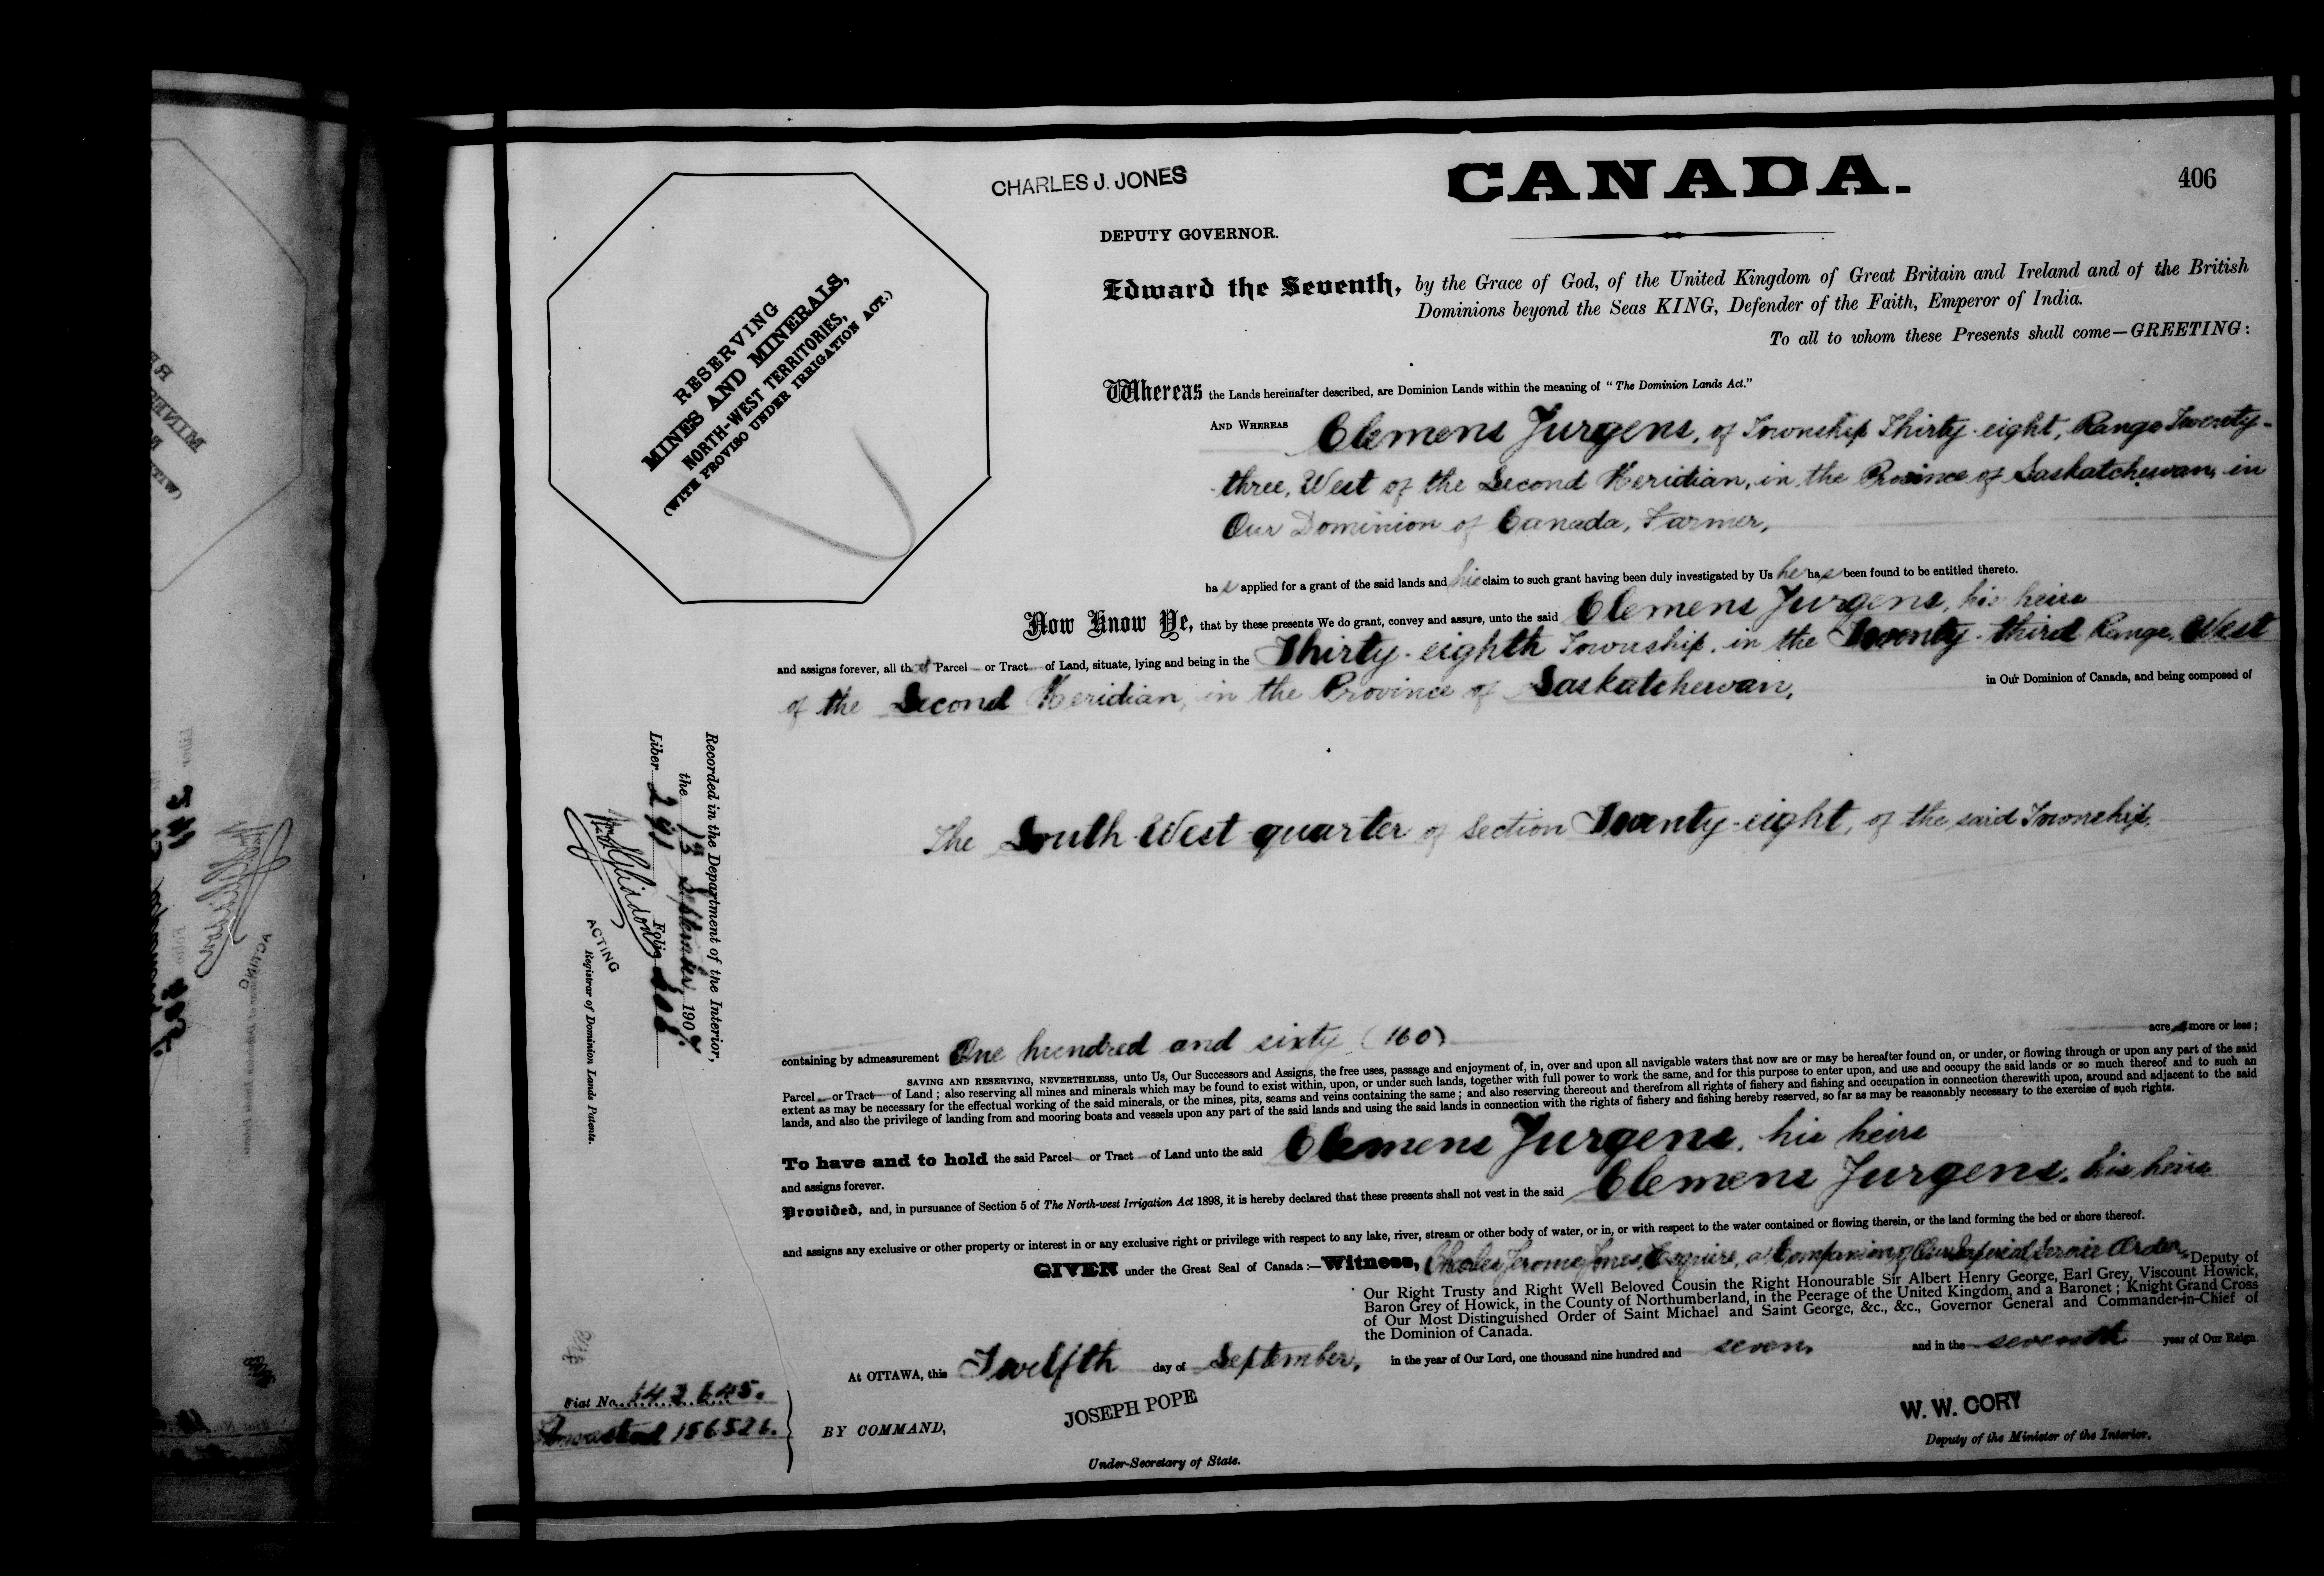 CHARLES J. JONES
CANADA.
406
DEPUTY GOVERNOR.
RESERVING
MINES AND MINERALS,
NORTH-WEST TERRITORIES,
(WITH PROVISO UNDER IRRIGATION ACT.)
Edward the Seventh, by the Grace of God, of the United Kingdom of Great Britain and Ireland and of the British
Dominions beyond the Seas KING, Defender of the Faith, Emperor of India.
To all to whom these Presents shall come—GREETING:
Whereas the Lands hereinafter described, are Dominion Lands within the meaning of "The Dominion Lands Act."
AND WHEREAS Clemens Jurgens, of Township Thirty-eight, Range Twenty-
three, West of the Second Meridian, in the Province of Saskatchewan, in
Our Dominion of Canada, Farmer,
has applied for a grant of the said lands and his claim to such grant having been duly investigated by Us he has been found to be entitled thereto.
Now Know Ye, that by these presents We do grant, convey and assure, unto the said Clemens Jurgens, his heirs
and assigns forever, all that Parcel or Tract of Land, situate, lying and being in the Thirty-eighth Township, in the Twenty-third Range, West
of the Second Meridian, in the Province of Saskatchewan, in Our Dominion of Canada, and being composed of
The South West quarter of Section Twenty-eight, of the said Township,
containing by admeasurement One hundred and sixty (160) acres more or less;
SAVING AND RESERVING, NEVERTHELESS, unto Us, Our Successors and Assigns, the free uses, passage and enjoyment of, in, over and upon all navigable waters that now are or may be hereafter found on, or under, or flowing through or upon any part of the said
Parcel or Tract of Land; also reserving all mines and minerals which may be found to exist within, upon, or under such lands, together with full power to work the same, and for this purpose to enter upon, and use and occupy the said lands or so much thereof and to such an
extent as may be necessary for the effectual working of the said minerals, or the mines, pits, seams and veins containing the same; and also reserving thereout and therefrom all rights of fishery and fishing and occupation in connection therewith upon, around and adjacent to the said
lands, and also the privilege of landing from and mooring boats and vessels upon any part of the said lands and using the said lands in connection with the rights of fishery and fishing hereby reserved, so far as may be reasonably necessary to the exercise of such rights.
To have and to hold the said Parcel or Tract of Land unto the said Clemens Jurgens, his heirs
and assigns forever.
Provided, and, in pursuance of Section 5 of The North-west Irrigation Act 1898, it is hereby declared that these presents shall not vest in the said Clemens Jurgens, his heirs
and assigns any exclusive or other property or interest in or any exclusive right or privilege with respect to any lake, river, stream or other body of water, or in, or with respect to the water contained or flowing therein, or the land forming the bed or shore thereof.
GIVEN under the Great Seal of Canada:—Witness, Charles Jerome Jones, Esquire, a Companion of Our Imperial Service Order, Deputy of
Our Right Trusty and Right Well Beloved Cousin the Right Honourable Sir Albert Henry George, Earl Grey, Viscount Howick,
Baron Grey of Howick, in the County of Northumberland, in the Peerage of the United Kingdom, and a Baronet; Knight Grand Cross
of Our Most Distinguished Order of Saint Michael and Saint George, &c., &c., Governor General and Commander-in-Chief of
the Dominion of Canada.
At OTTAWA, this Twelfth day of September, in the year of Our Lord, one thousand nine hundred and seven, and in the seventh year of Our Reign
BY COMMAND,
JOSEPH POPE
Under-Secretary of State.
W. W. CORY
Deputy of the Minister of the Interior.
Recorded in the Department of the Interior,
the 13 September 1907
Liber 241 Folio
ACTING
Registrar of Dominion Lands Patents.
Fiat No. 143645.
156526.